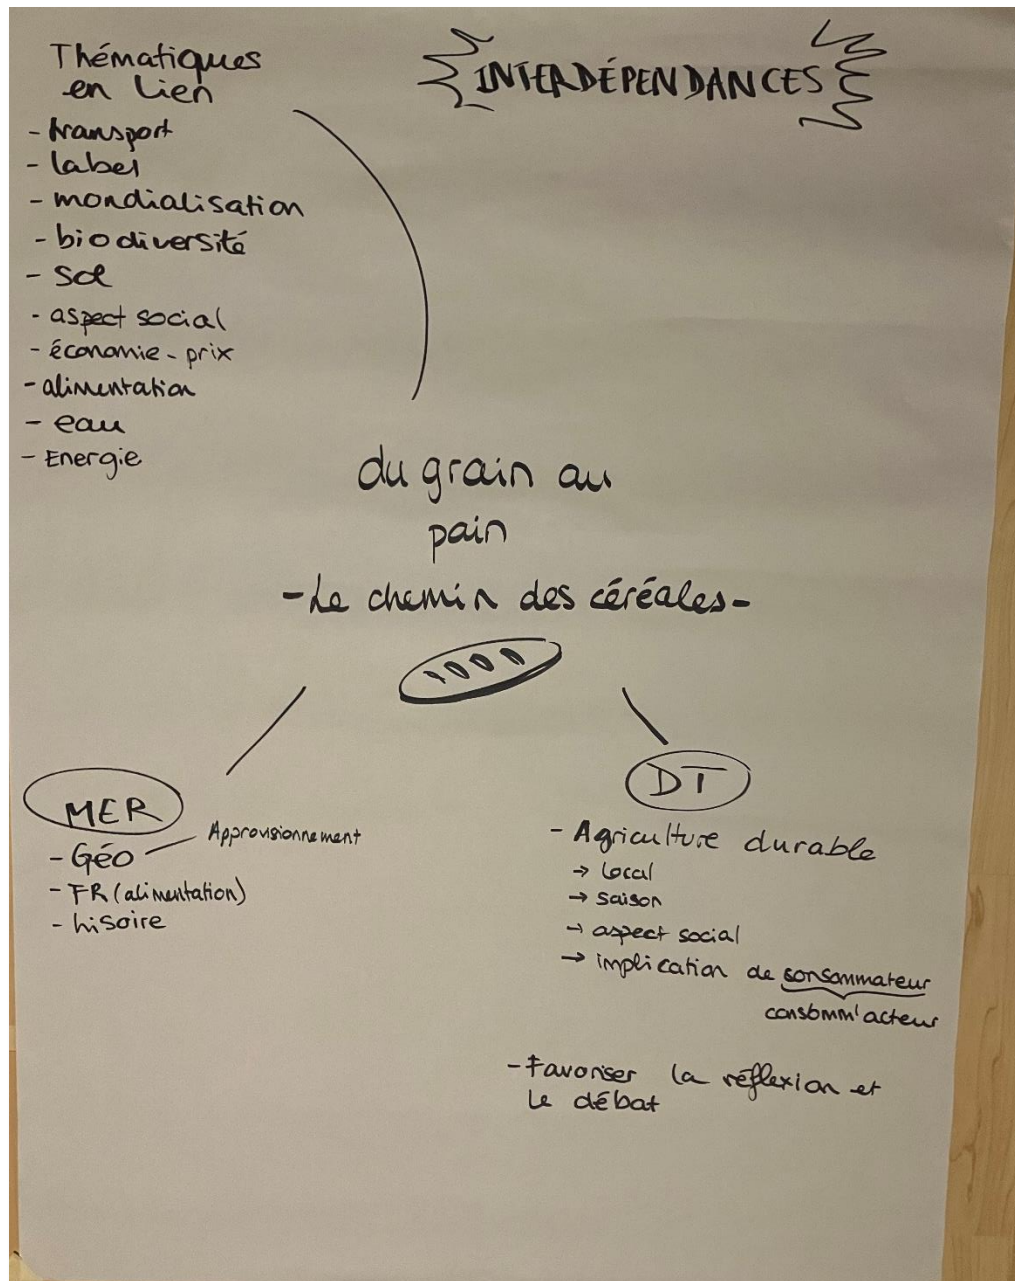 Thématiques
en lien
- transport
- label
- mondialisation
- biodiversité
- sol
- aspect social
- économie - prix
- alimentation
- eau
- Energie
INTERDÉPENDANCES
du grain au
pain
- Le chemin des céréales -
MER
- Géo
Approvisionnement
- FR (alimentation)
- hisoire
DT
- Agriculture durable
→ local
→ saison
→ aspect social
→ implication de sonsommateur
consomm'acteur
- Favoriser la réflexion et
le débat